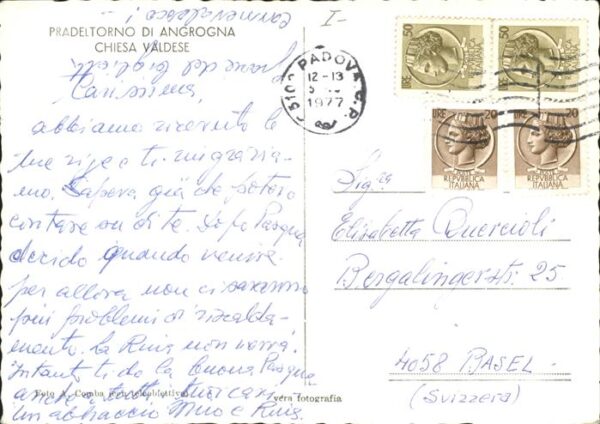 PRADELTORNO DI ANGROGNA
CHIESA VALDESE
Carissima,
abbiamo ricevuto le
tue righe e ti ringrazia-
mo. Sapevo già che potevo
contare su di te. Dopo Pasqua
decido quando venire
per allora non ci saranno
più problemi di riscalda-
mento. La Rina non verrà.
Intanto ti do la buona Pasqua
a te e a tutti i tuoi cari
Un abbraccio Nino e Rina.
Foto A. Comba
vera fotografia
I-
PADOVA C.P.
12-13
1977
LIRE 50
REPVBBLICA
ITALIANA
LIRE 50
REPVBBLICA
ITALIANA
LIRE 20
REPVBBLICA
ITALIANA
LIRE 20
REPVBBLICA
ITALIANA
Sig.ra
Elisabetta Quercioli
Bergalingerstr. 25
4058 BASEL
(Svizzera)